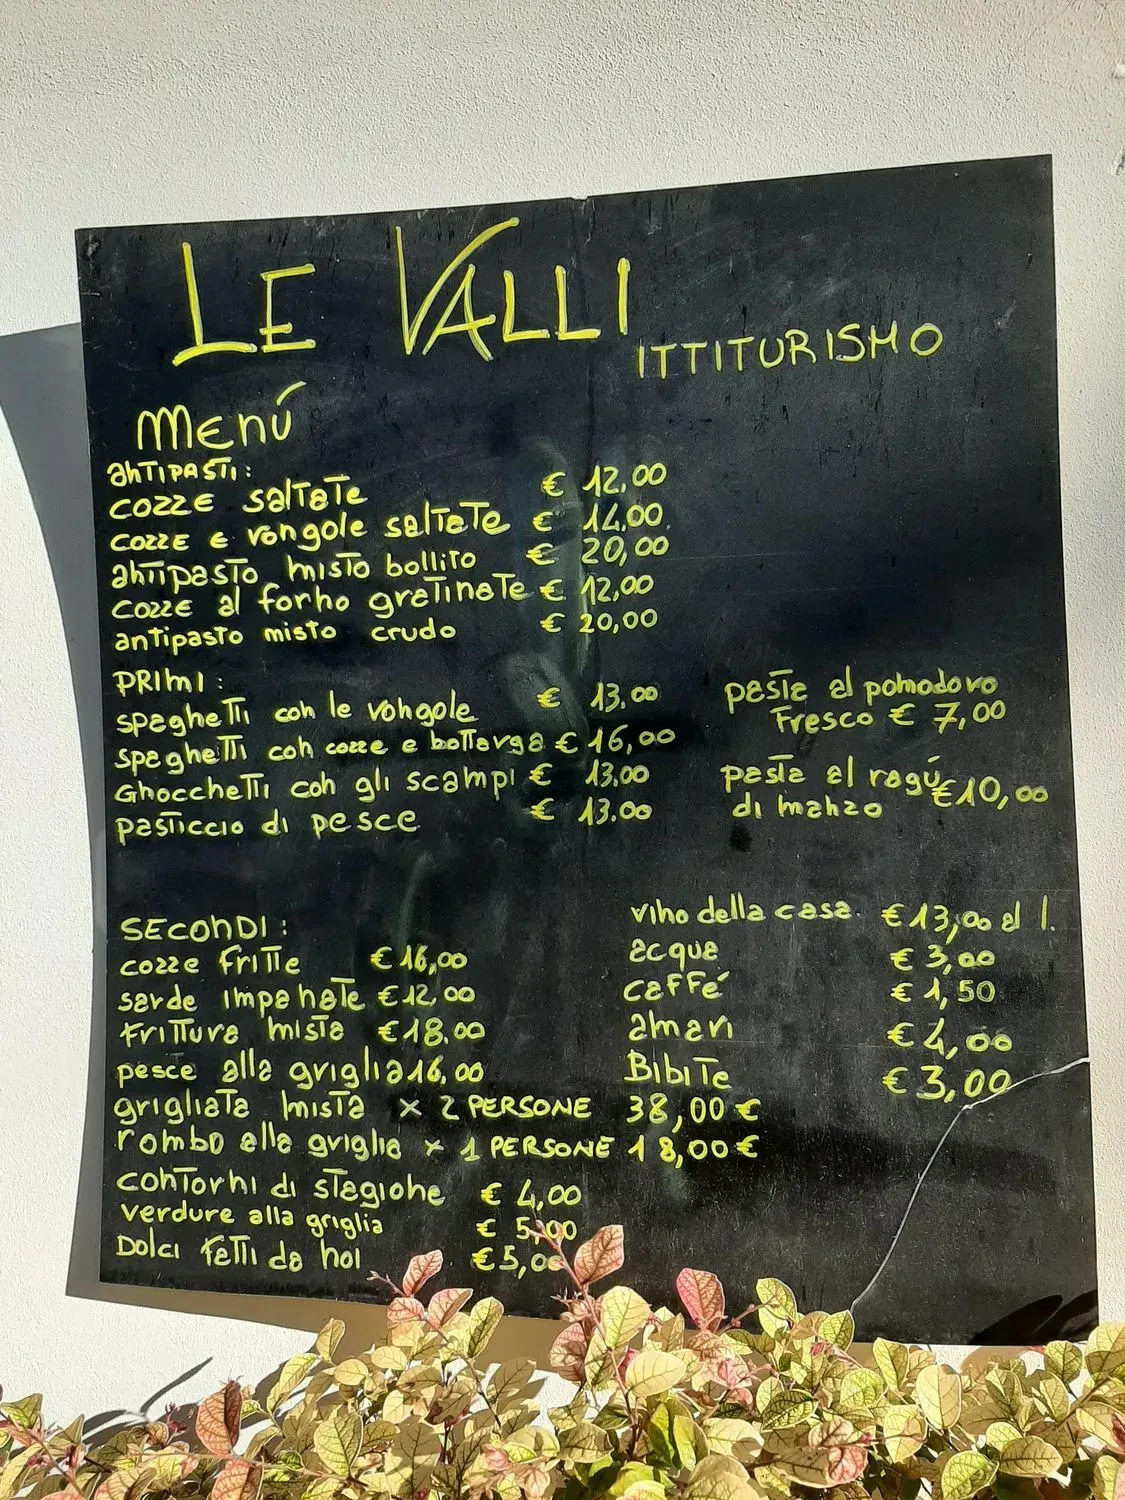 LE VALLI
ITTITURISMO
Menú
antipasti:
cozze saltate € 12,00
cozze e vongole saltate € 14,00
antipasto misto bollito € 20,00
cozze al forno gratinate € 12,00
antipasto misto crudo € 20,00
PRIMI:
spaghetti con le vongole € 13,00
spaghetti con cozze e bottarga € 16,00
Gnocchetti con gli scampi € 13.00
pasticcio di pesce € 13.00
pasta al pomodoro
Fresco € 7,00
pasta al ragú €10,00
di manzo
SECONDI:
cozze fritte € 16,00
sarde impanate € 12,00
frittura mista € 18.00
pesce alla griglia 16,00
grigliata mista x 2 PERSONE 38,00 €
rombo alla griglia x 1 PERSONE 18,00 €
contorni di stagione € 4,00
verdure alla griglia € 5,00
Dolci fatti da noi € 5,00
vino della casa. € 13,00 al l.
acqua € 3,00
caffé € 1,50
amari € 4,00
Bibite € 3,00